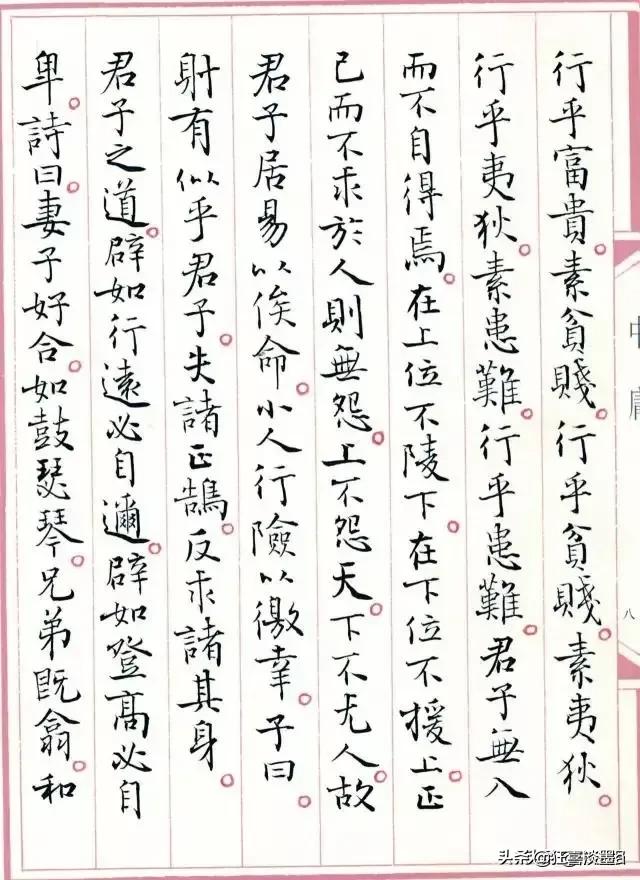 行乎富貴。素貧賤。行乎貧賤。素夷狄。
行乎夷狄。素患難。行乎患難。君子無入
而不自得焉。在上位不陵下。在下位不援上。正
己而不求於人則無怨。上不怨天。下不尤人。故
君子居易以俟命。小人行險以徼幸。子曰。
射有似乎君子。失諸正鵠。反求諸其身。
君子之道。辟如行遠必自邇。辟如登高必自
卑。詩曰。妻子好合。如鼓瑟琴。兄弟既翕。和
中庸
八
头条@狂喜淡墨